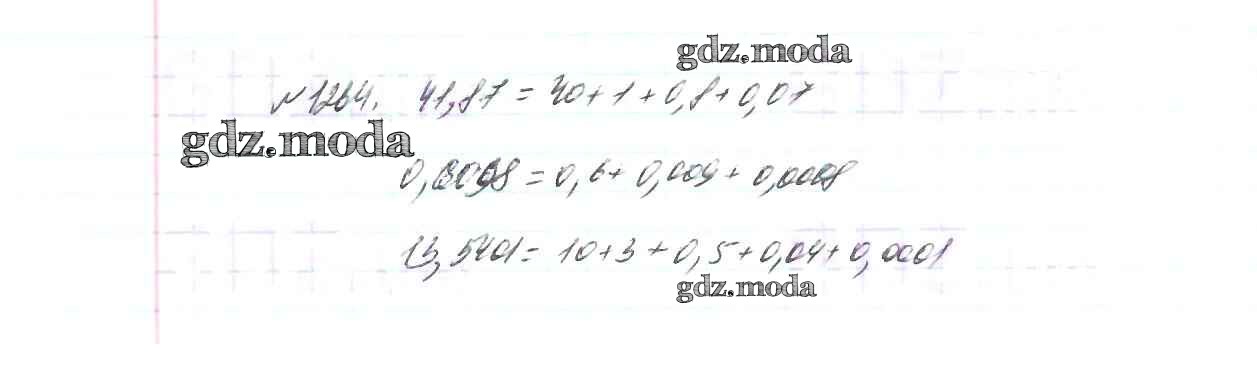 gdz.moda
№1264. 41,87 = 40+1+0,8+0,07
gdz.moda
0,6098 = 0,6+ 0,009+ 0,0008
13,5401= 10+3+0,5+0,04+0,0001
gdz.moda